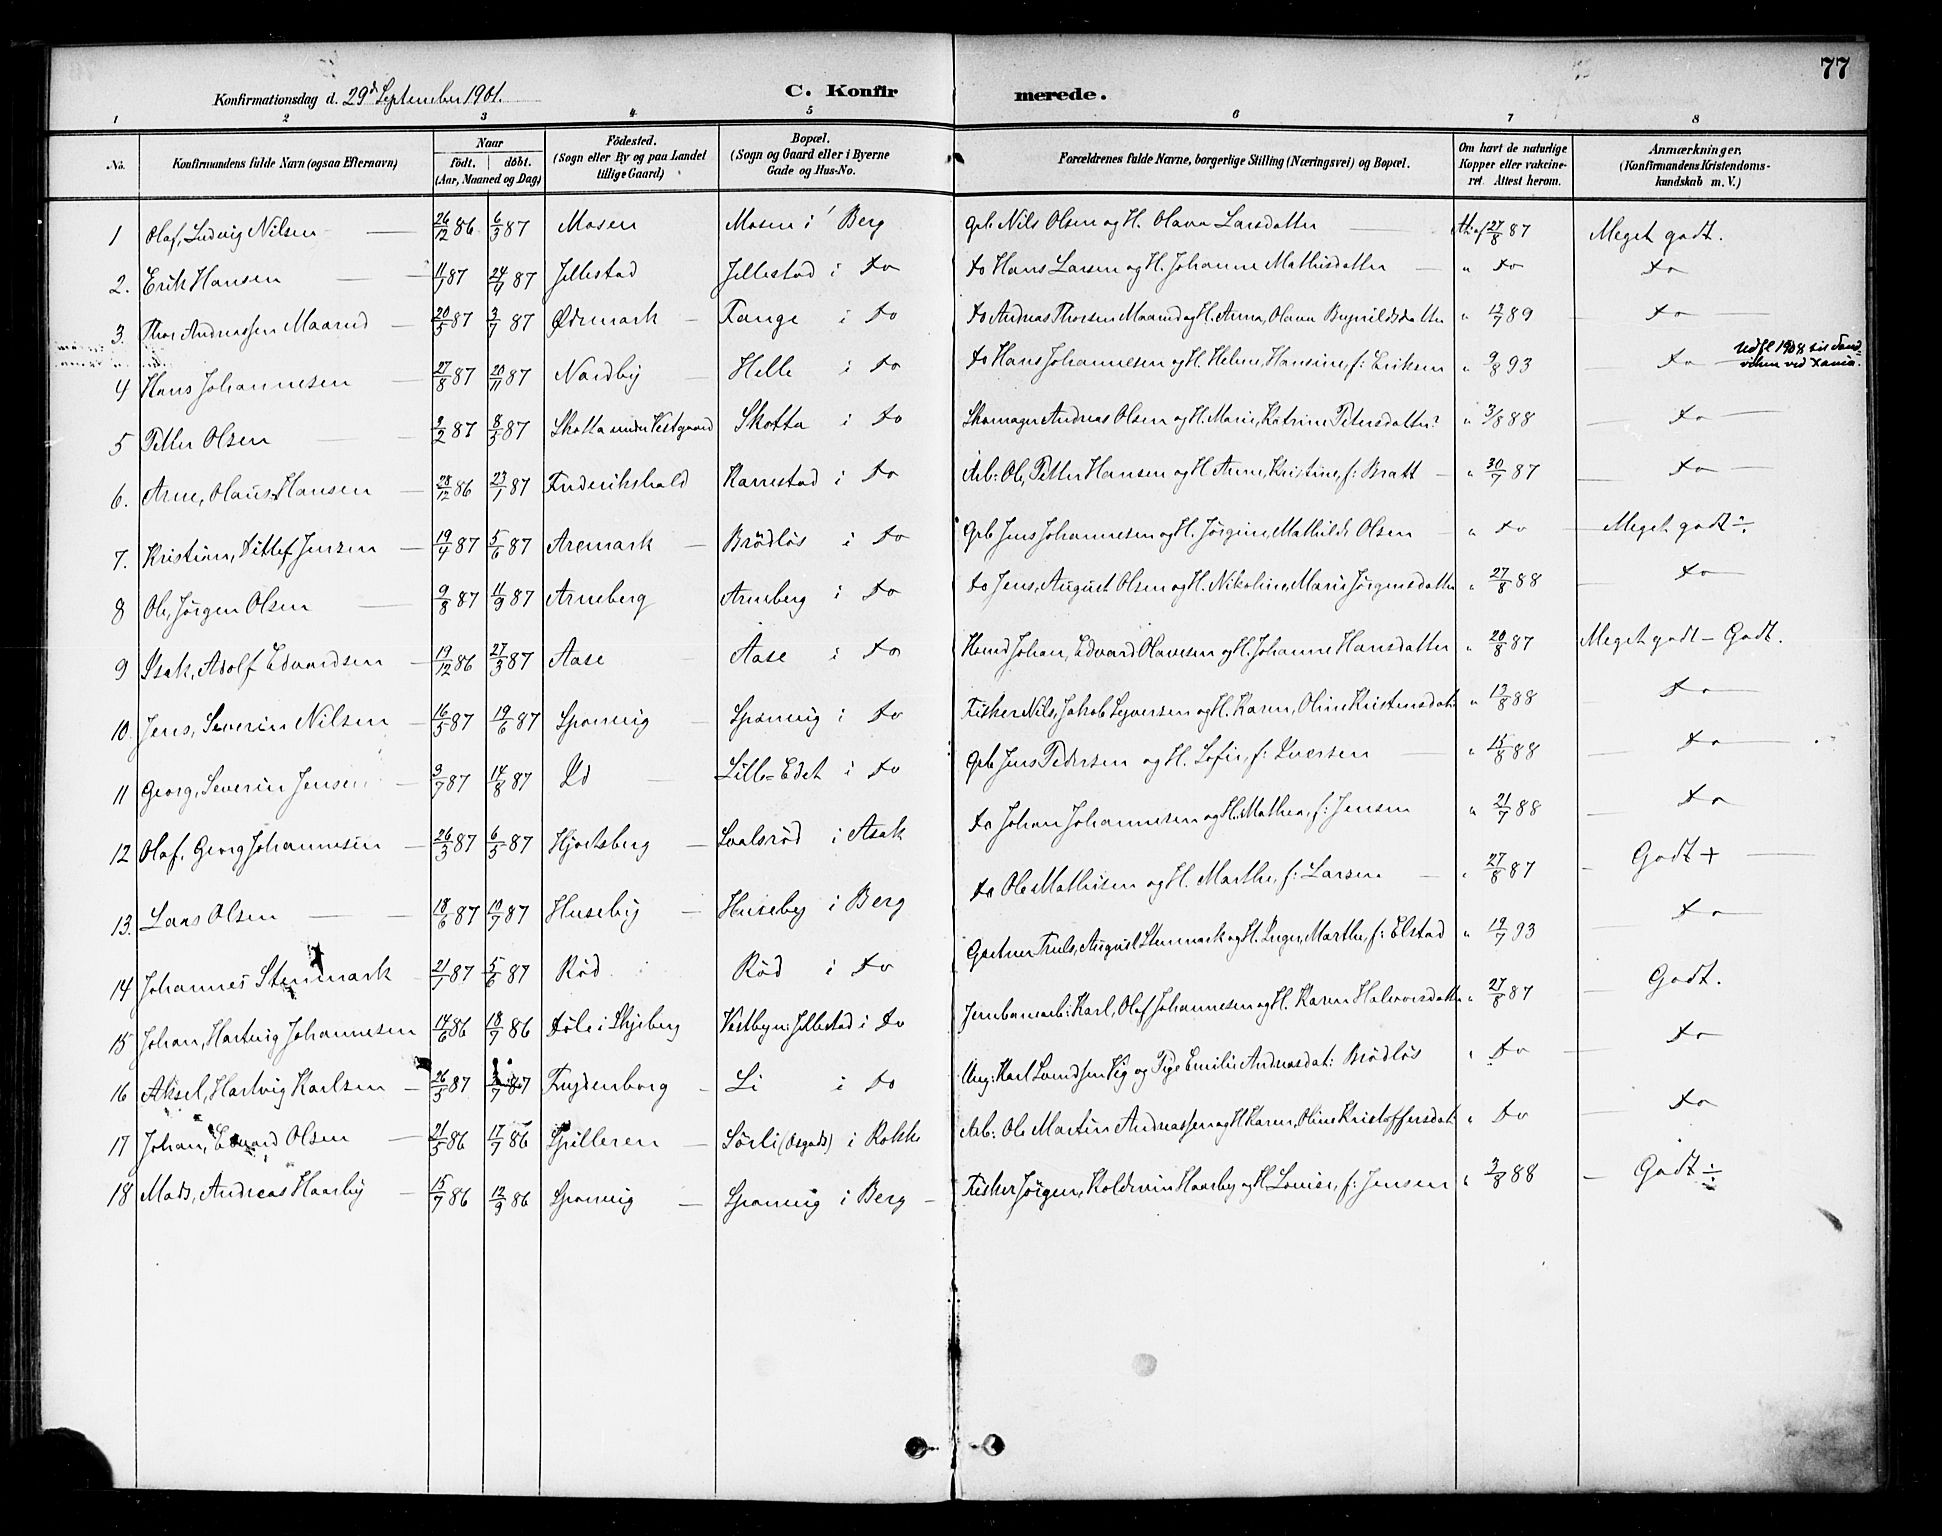 77
Konfirmationsdag d. 29d September 1901.
C. Konfirmerede.
1 2 3 4 5 6 7 8
No. Konfirmandens fulde Navn (ogsaa Efternavn) Naar födt. döbt. (Aar, Maaned og Dag) Födested. (Sogn eller By og paa Landet tillige Gaard) Bopæl. (Sogn og Gaard eller i Byerne Gade og Hus-No. Forældrenes fulde Navne, borgerlige Stilling (Næringsvei) og Bopæl. Om havt de naturlige Kopper eller vaccineret. Attest herom. Anmærkninger. (Konfirmandens Kristendomskundskab m. V.)
1 Olaf, Ludvig Nilsen 26/12 86 6/3 87 Mosen Mosen i Berg Nils Olsen og H. Olava Larsdatter At. af 27/8 87 Meget godt.
2. Erik Hansen 87 87 Jellestad Jellestad i do do Hans Larsen og H. Johanne Mathisdatter " do do
3. Thor Andreassen Maarud 20/5 87 3/7 87 Ødemark Tange i do do Andreas Thorsen Maarud og H. Anna, Olava " 12/7 89 do
4 Hans Johannesen 27/8 87 20/11 87 Nordby Helle i do do Hans Johannesen og H. Helene, Hansine, f: Eriksen " 9/8 93 do Udfl 1908 til Sandviken ved Xania.
5 Petter Olsen 2/2 87 8/5 87 Skotta under Vestgaard Skotta i do Skomager Andreas Olsen og H. Marie, Katrine Petersdatter " 3/8 88 do
6. Arne, Olaus Hansen 28/12 86 23/1 87 Frederikshald Karrestad i do Arb: Ole, Petter Hansen og H. Anne, Kristine, f: Bratt " 30/7 87 do
7. Kristian, Ditlef Jensen 19/4 87 5/6 87 Aremark Brödlös i do Jens Johannesen og H. Jörgine, Mathilde Olsen " do Meget godt ÷
8 Ole, Jörgen Olsen 9/8 87 11/9 87 Arneberg Arneberg i do do Jens, August Olsen og H. Nikoline, Marie Jörgensdatter " 27/8 88 do
9 Isak, Adolf Edvardsen 19/12 86 27/3 87 Aase Aase i do Johan, Edvard Olavesen og H. Johanne Hansdatter " 20/8 87 Meget godt – Godt.
10. Jens, Severin Nilsen 16/5 87 19/6 87 Sponvig Sponvig i do Fisker Nils, Jakob Syversen og H. Karen, Oline Kristensdat: " 13/8 88 do
11 Georg, Severin Jensen 3/7 87 14/8 87 Id Lille-Edet i do Jens Pedersen og H. Sofie, f: Iversen " 15/8 88 do
12 Olaf, Georg Johannesen 26/3 87 6/5 87 Hjortsberg Svalsröd i Asak do Johan Johannesen og H. Mathea, f: Jensen " 21/7 88 do
13. Lars Olsen 18/6 87 87 Huseby Huseby i Berg do Ole Mathisen og H. Marthe, f: Larsen " 27/8 87 Godt +
14 Johannes Stenmark 87 5/6 87 Röd Röd i do Gartner Truls, August Stenmark og H. Inger, Marthe, f: Elstad " 19/7 93 do
15 Johan, Hartvig Johannesen 14/6 86 18/7 86 Döle i Skjeberg Vestbyen: Jellestad i do Jernbanearb: Karl, Olaf Johannesen og H. Karen Halvorsdatter " 27/8 87 Godt.
16 Aksel, Hartvig Karlsen 26/3 87 87 Frydenborg Li i do Ung: Karl Svendsen Vig og Pige Emilie Andreasdat: Brödlös " do do
17 Johan, Edvard Olsen 21/5 86 17/7 86 Spilleren Sörli (Osgods) i Rokke Arb: Ole Martin Andreassen og H. Karen, Oline Kristoffersdat: " do do
18 Mads, Andreas Haarby 15/7 86 12/9 86 Sponvig Sponvig i Berg Fisker Jörgen, Koldevin Haarby og H. Lovise, f: Jensen " 3/8 88 Godt ÷